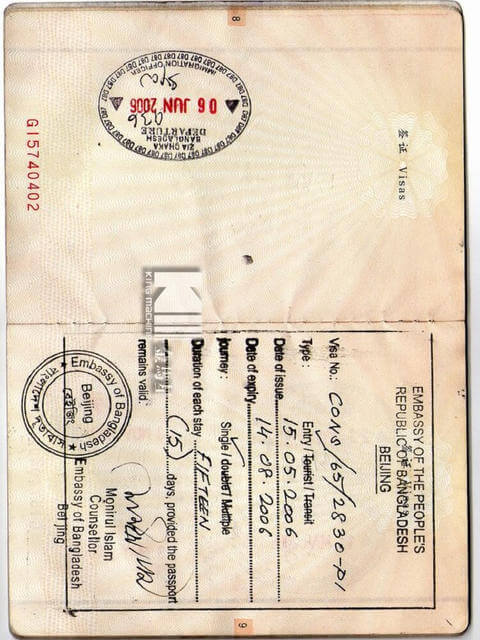 8
签证 Visas
D87 D87 D87 D87 D87 D87
IMMIGRATION OFFICER
06 JUN 2006
DEPARTURE
BANGLADESH
ZIA DHAKA
G15740402
KING
EMBASSY OF THE PEOPLE'S
REPUBLIC OF BANGLADESH
BEIJING
Visa No.: CONS/65/2830-P1
Type: Entry/Tourist/Transit
Date of issue 15.05.2006
Date of expiry 14.08.2006
Journey: Single/double/Multiple
Duration of each stay FIFTEEN
(15) days, provided the passport
remains valid.
Embassy of Bangladesh
Beijing
Monirul Islam
Counsellor
Embassy of Bangladesh
Beijing
9